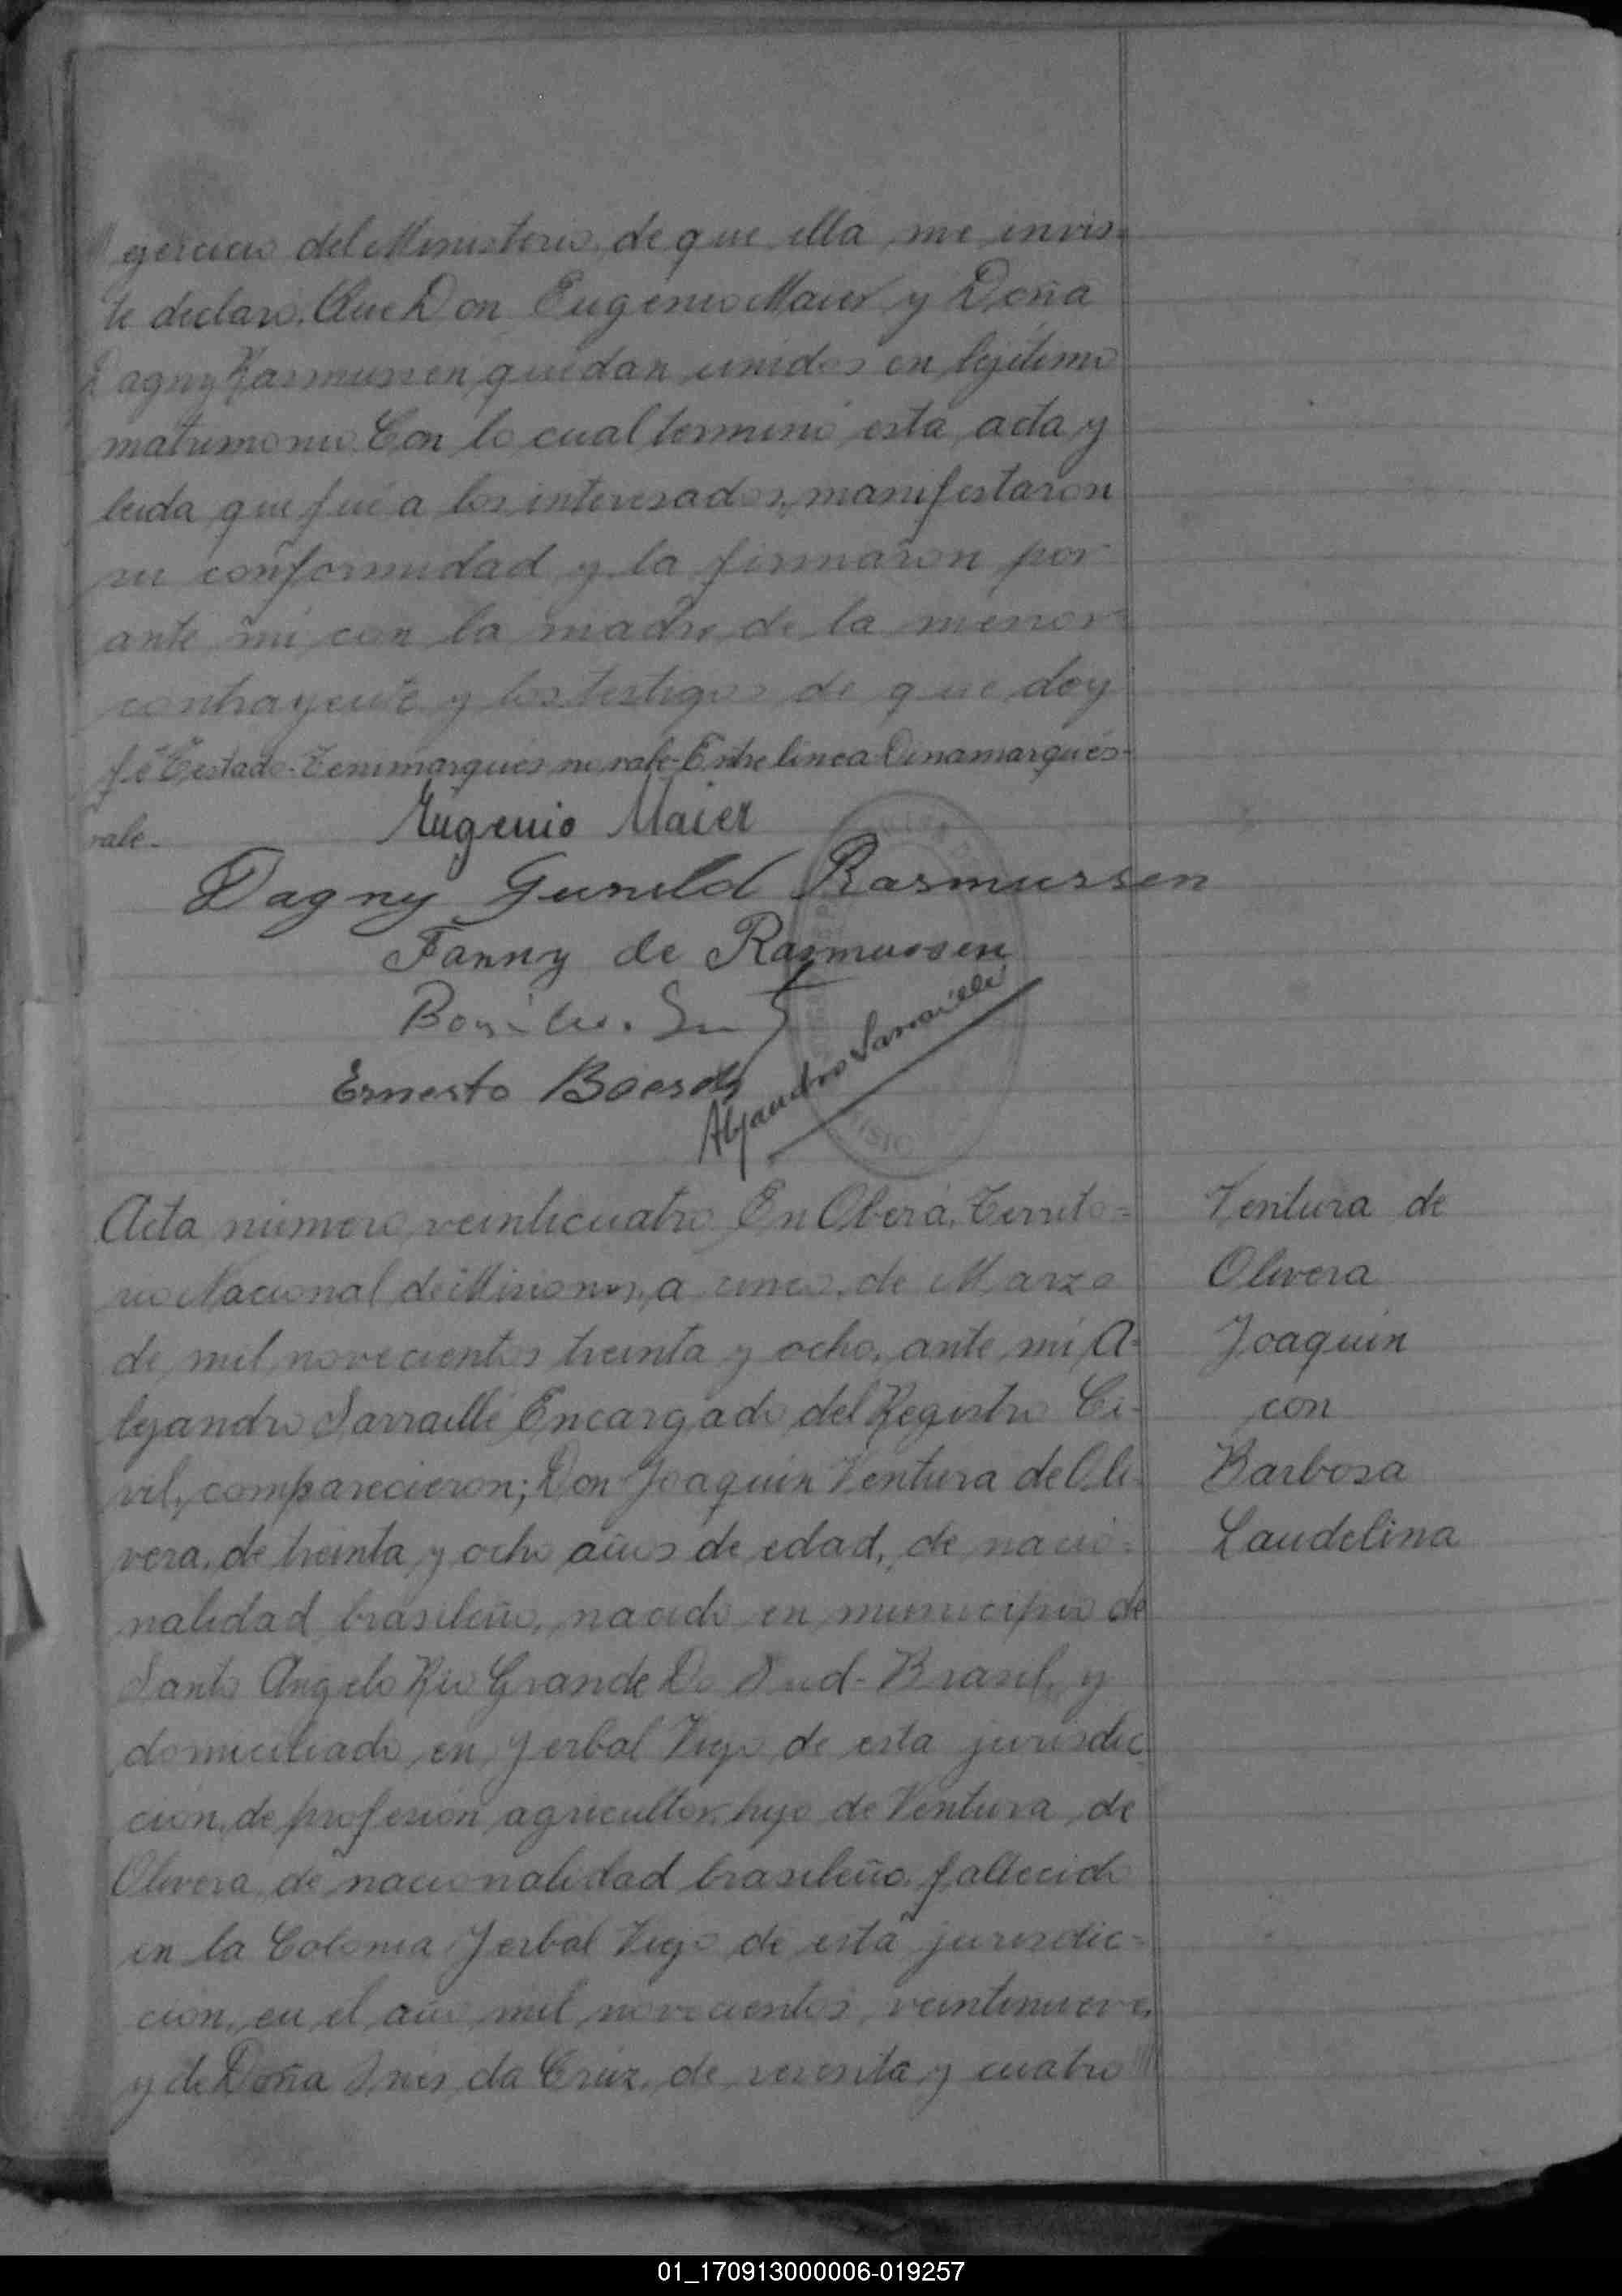 ejercicio del Ministerio de que ella me invis-
te declaro. Que Don Eugenio Maier y Doña
Dagny Rasmussen quedan unidos en lejítimo
matrimonio. Con lo cual terminó esta acta y
leida que fué a los interesados, manifestaron
su conformidad y la firmaron por
ante mi con la madre de la menor
contrayente y los testigos de que doy
fé Testado-Tenimarques no vale-Entre linea Dinamarqués-
vale.
Eugenio Maier
Dagny Gunild Rasmussen
Fanny de Rasmussen
Ernesto Boesch
Alejandro Sarraillé
Acta número veinticuatro En Oberá, Territo=
rio Nacional de Misiones, a cinco de Marzo
de mil novecientos treinta y ocho, ante mi A-
lejandro Sarraillé Encargado del Registro Ci-
vil, comparecieron; Don Joaquin Ventura de Oli-
vera, de treinta y ocho años de edad, de nacio=
nalidad brasileño, nacido en municipio de
Santo Angelo Rio Grande Do Sud-Brasil, y
domiciliado en Yerbal Viejo de esta jurisdic
ción, de profesión agricultor, hijo de Ventura de
Olivera de nacionalidad brasileño, fallecido
en la Colonia Yerbal Viejo de esta jurisdic=
ción, en el año mil novecientos veintinueve,
y de Doña Inés da Cruz, de sesenta y cuatro
Ventura de
Olivera
Joaquin
con
Barbosa
Laudelina
01_170913000006-019257